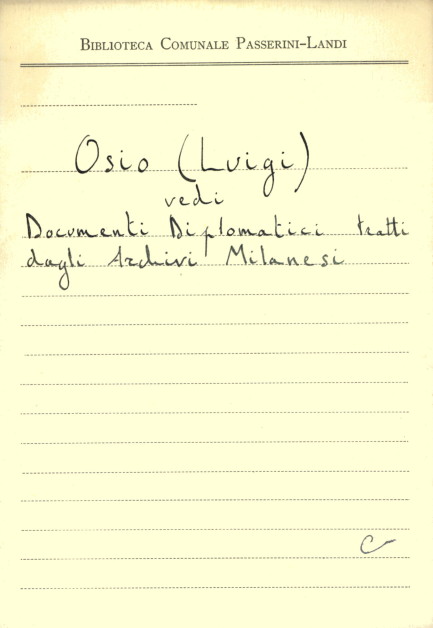 Biblioteca Comunale Passerini-Landi
Osio (Luigi)
vedi
Documenti Diplomatici tratti
dagli Archivi Milanesi